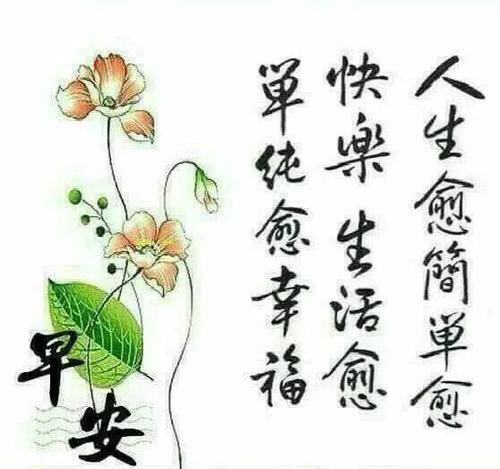 人生愈簡单愈
快樂 生活愈
單纯愈幸福
早安